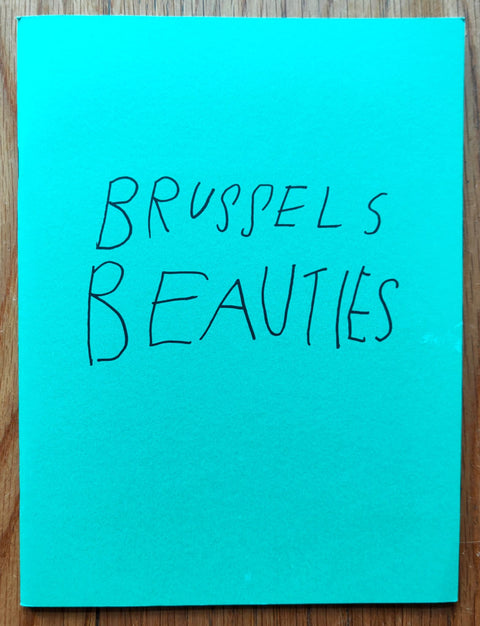 BRUSSELS
BEAUTIES